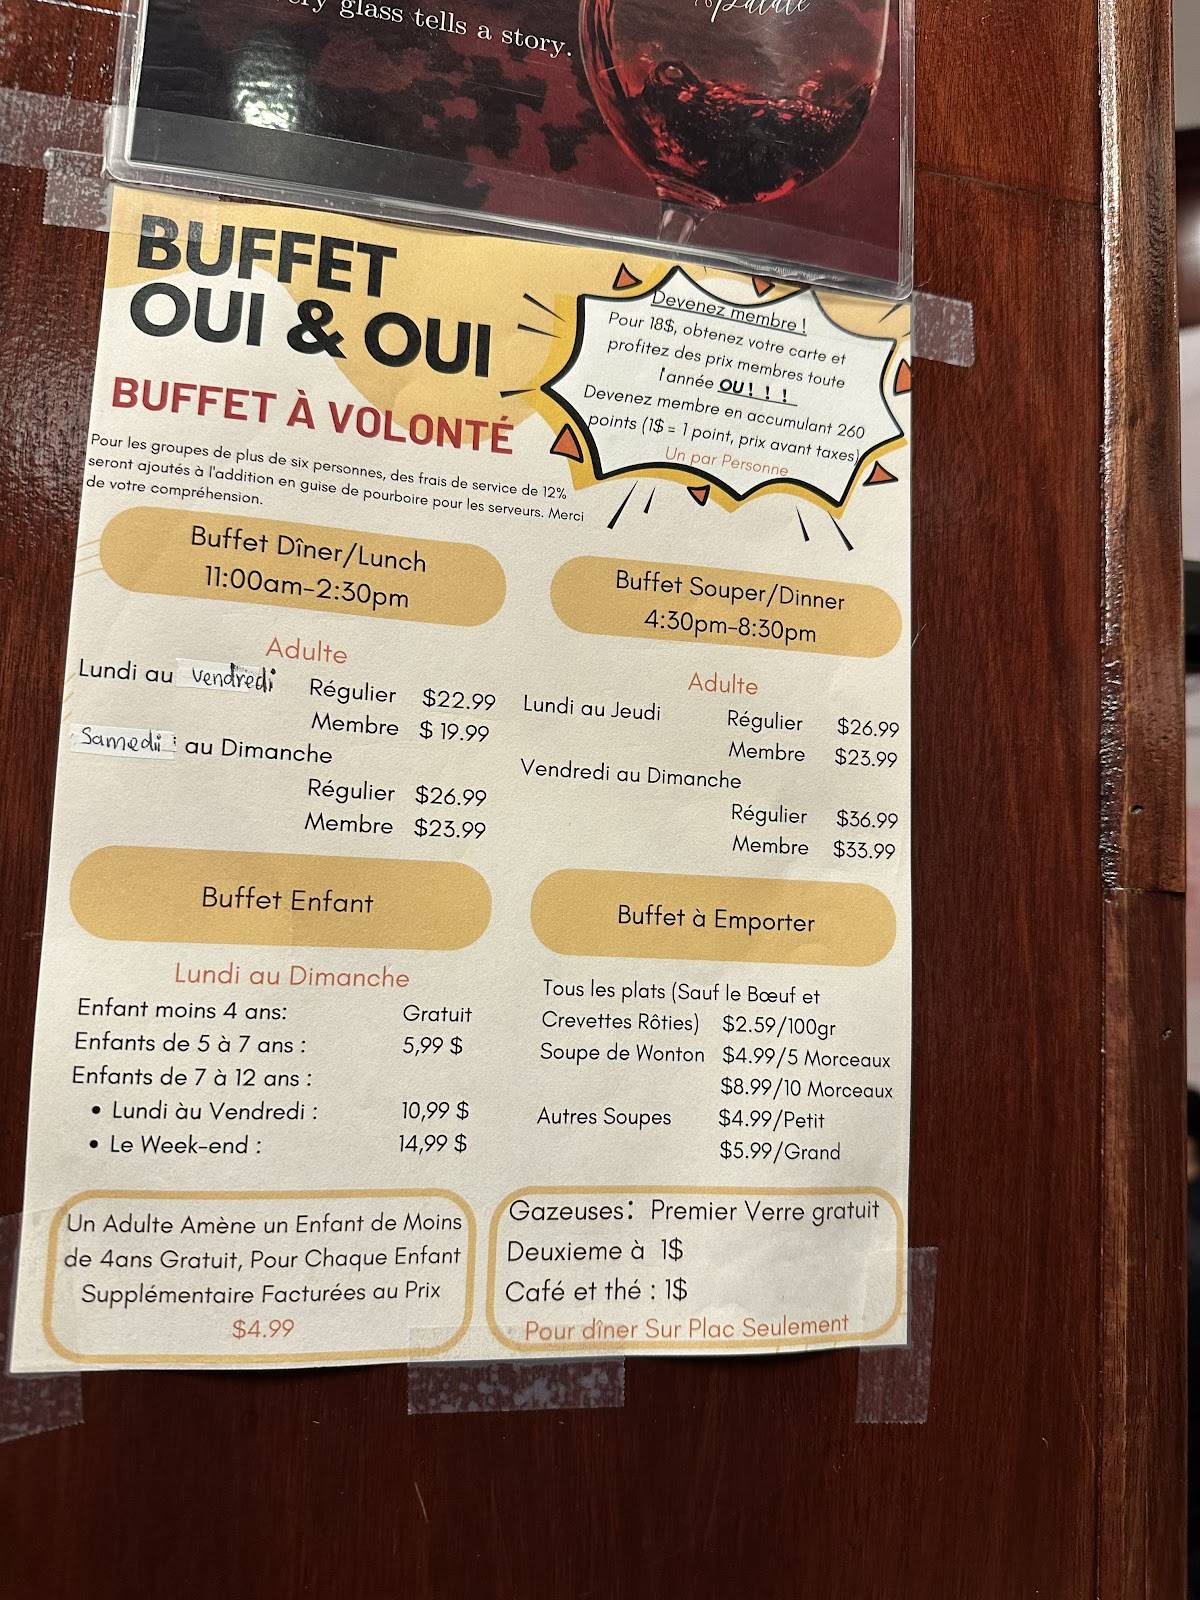 ry glass tells a story.
Palate
BUFFET
OUI & OUI
BUFFET À VOLONTÉ
Pour les groupes de plus de six personnes, des frais de service de 12%
seront ajoutés à l'addition en guise de pourboire pour les serveurs. Merci
de votre compréhension.
Devenez membre !
Pour 18$, obtenez votre carte et
profitez des prix membres toute
l'année OU! ! !
Devenez membre en accumulant 260
points (1$ = 1 point, prix avant taxes)
Un par Personne
Buffet Dîner/Lunch
11:00am-2:30pm
Adulte
Lundi au vendredi Régulier $22.99
Membre $ 19.99
Samedi au Dimanche
Régulier $26.99
Membre $23.99
Buffet Souper/Dinner
4:30pm-8:30pm
Adulte
Lundi au Jeudi Régulier $26.99
Membre $23.99
Vendredi au Dimanche
Régulier $36.99
Membre $33.99
Buffet Enfant
Lundi au Dimanche
Enfant moins 4 ans: Gratuit
Enfants de 5 à 7 ans : 5,99 $
Enfants de 7 à 12 ans :
• Lundi àu Vendredi : 10,99 $
• Le Week-end : 14,99 $
Buffet à Emporter
Tous les plats (Sauf le Bœuf et
Crevettes Rôties) $2.59/100gr
Soupe de Wonton $4.99/5 Morceaux
$8.99/10 Morceaux
Autres Soupes $4.99/Petit
$5.99/Grand
Un Adulte Amène un Enfant de Moins
de 4ans Gratuit, Pour Chaque Enfant
Supplémentaire Facturées au Prix
$4.99
Gazeuses: Premier Verre gratuit
Deuxieme à 1$
Café et thé : 1$
Pour dîner Sur Plac Seulement